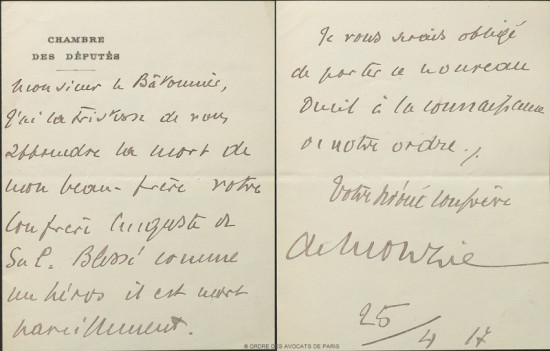 CHAMBRE
DES DÉPUTÉS
Monsieur le Bâtonnier,
J'ai la tristesse de vous
apprendre la mort de
mon beau-frère votre
confrère Auguste de
Blessé comme
un héros il est mort
pareillement.
Je vous serais obligé
de porter ce nouveau
deuil à la connaissance
de notre ordre.
Votre dévoué confrère
de Monzie
25/4 17
© ORDRE DES AVOCATS DE PARIS